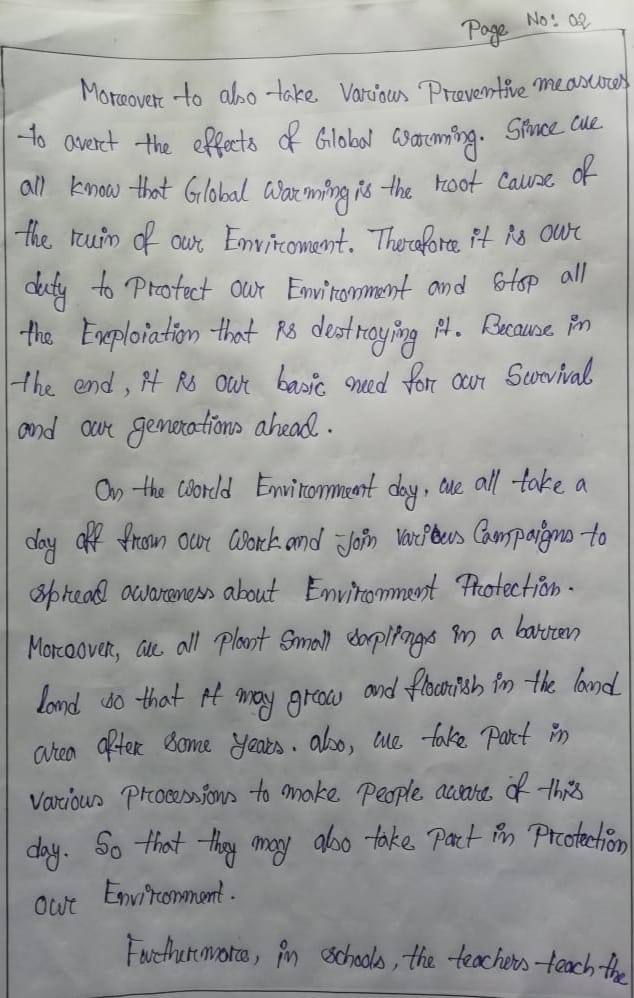 Page No: 02
Moreover to also take Various Preventive measures
to avert the effects of Global warming. Since we
all know that Global Warming is the root cause of
the ruin of our Enviroment. Therefore it is our
duty to Protect our Environment and stop all
the Exploiation that is destroying it. Because in
the end, it is our basic need for our Survival
and our generations ahead.
On the World Environment day, we all take a
day off from our work and Join various Campaigns to
spread awareness about Environment Protection.
Moreover, we all Plant Small saplings in a barren
land so that it may grow and flourish in the land
area after some years. also, we take Part in
various Processions to make People aware of this
day. So that they may also take Part in Protection
our Environment.
Furthermore, in schools, the teachers teach the